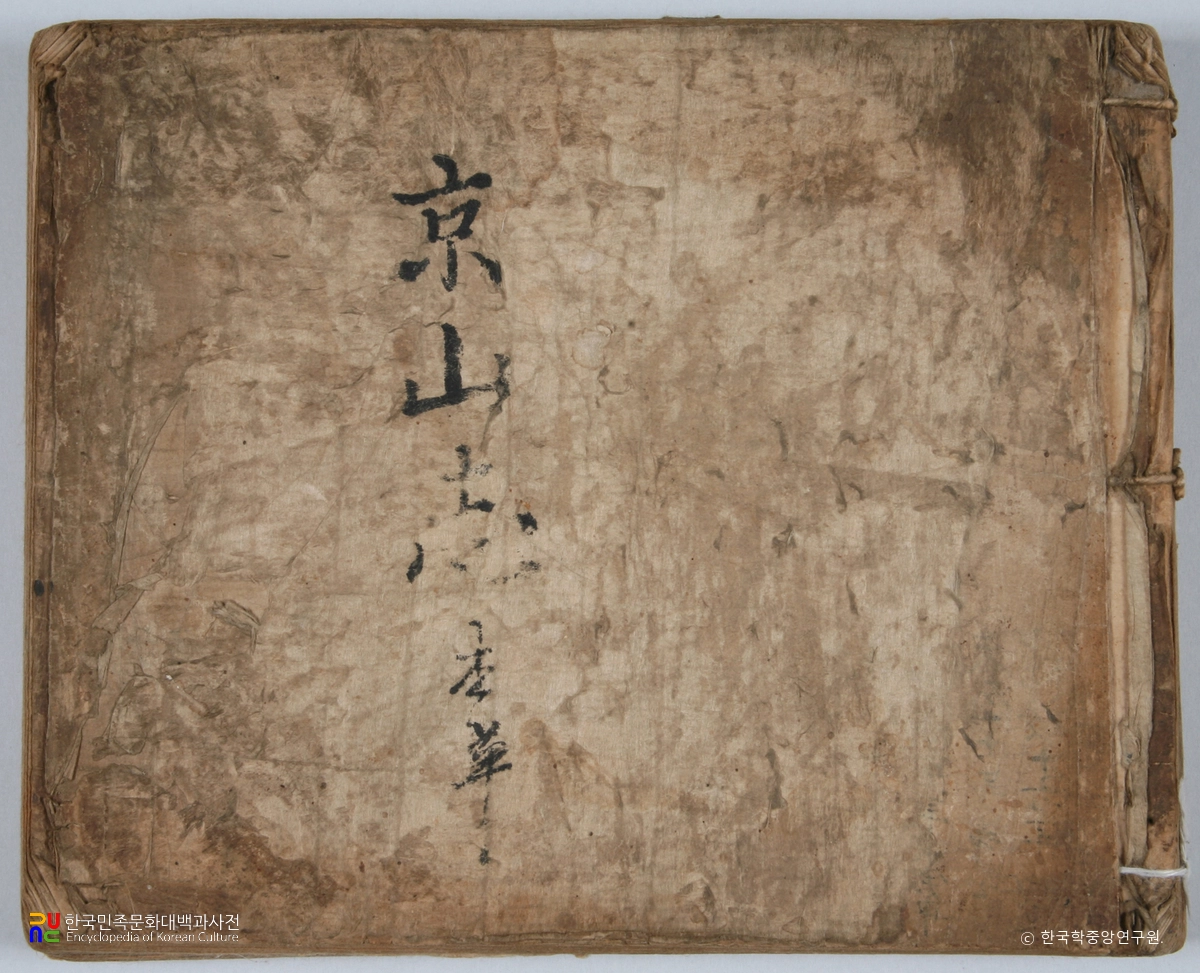 京山志 李革
한국민족문화대백과사전
Encyclopedia of Korean Culture
© 한국학중앙연구원.